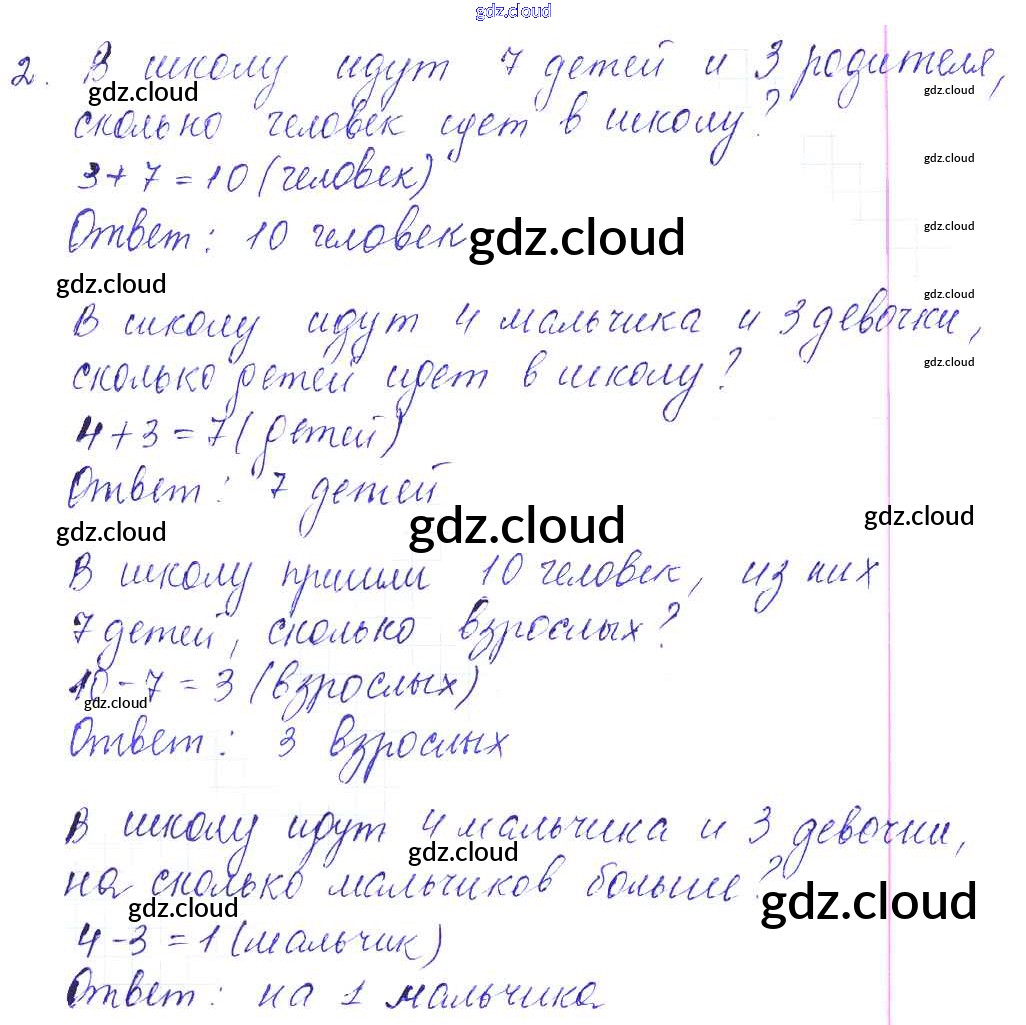 gdz.cloud
2. В школу идут 7 детей и 3 родителя,
gdz.cloud gdz.cloud
сколько человек идет в школу?
gdz.cloud
3+7=10 (человек)
Ответ: 10 человек gdz.cloud gdz.cloud
gdz.cloud gdz.cloud
В школу идут 4 мальчика и 3 девочки,
gdz.cloud
сколько детей идет в школу?
4+3=7 (детей)
Ответ: 7 детей
gdz.cloud gdz.cloud gdz.cloud
В школу пришли 10 человек, из них
7 детей, сколько взрослых?
10-7=3 (взрослых)
gdz.cloud
Ответ: 3 взрослых
В школу идут 4 мальчика и 3 девочки,
gdz.cloud
на сколько мальчиков больше?
gdz.cloud gdz.cloud
4-3=1 (мальчик)
Ответ: на 1 мальчика